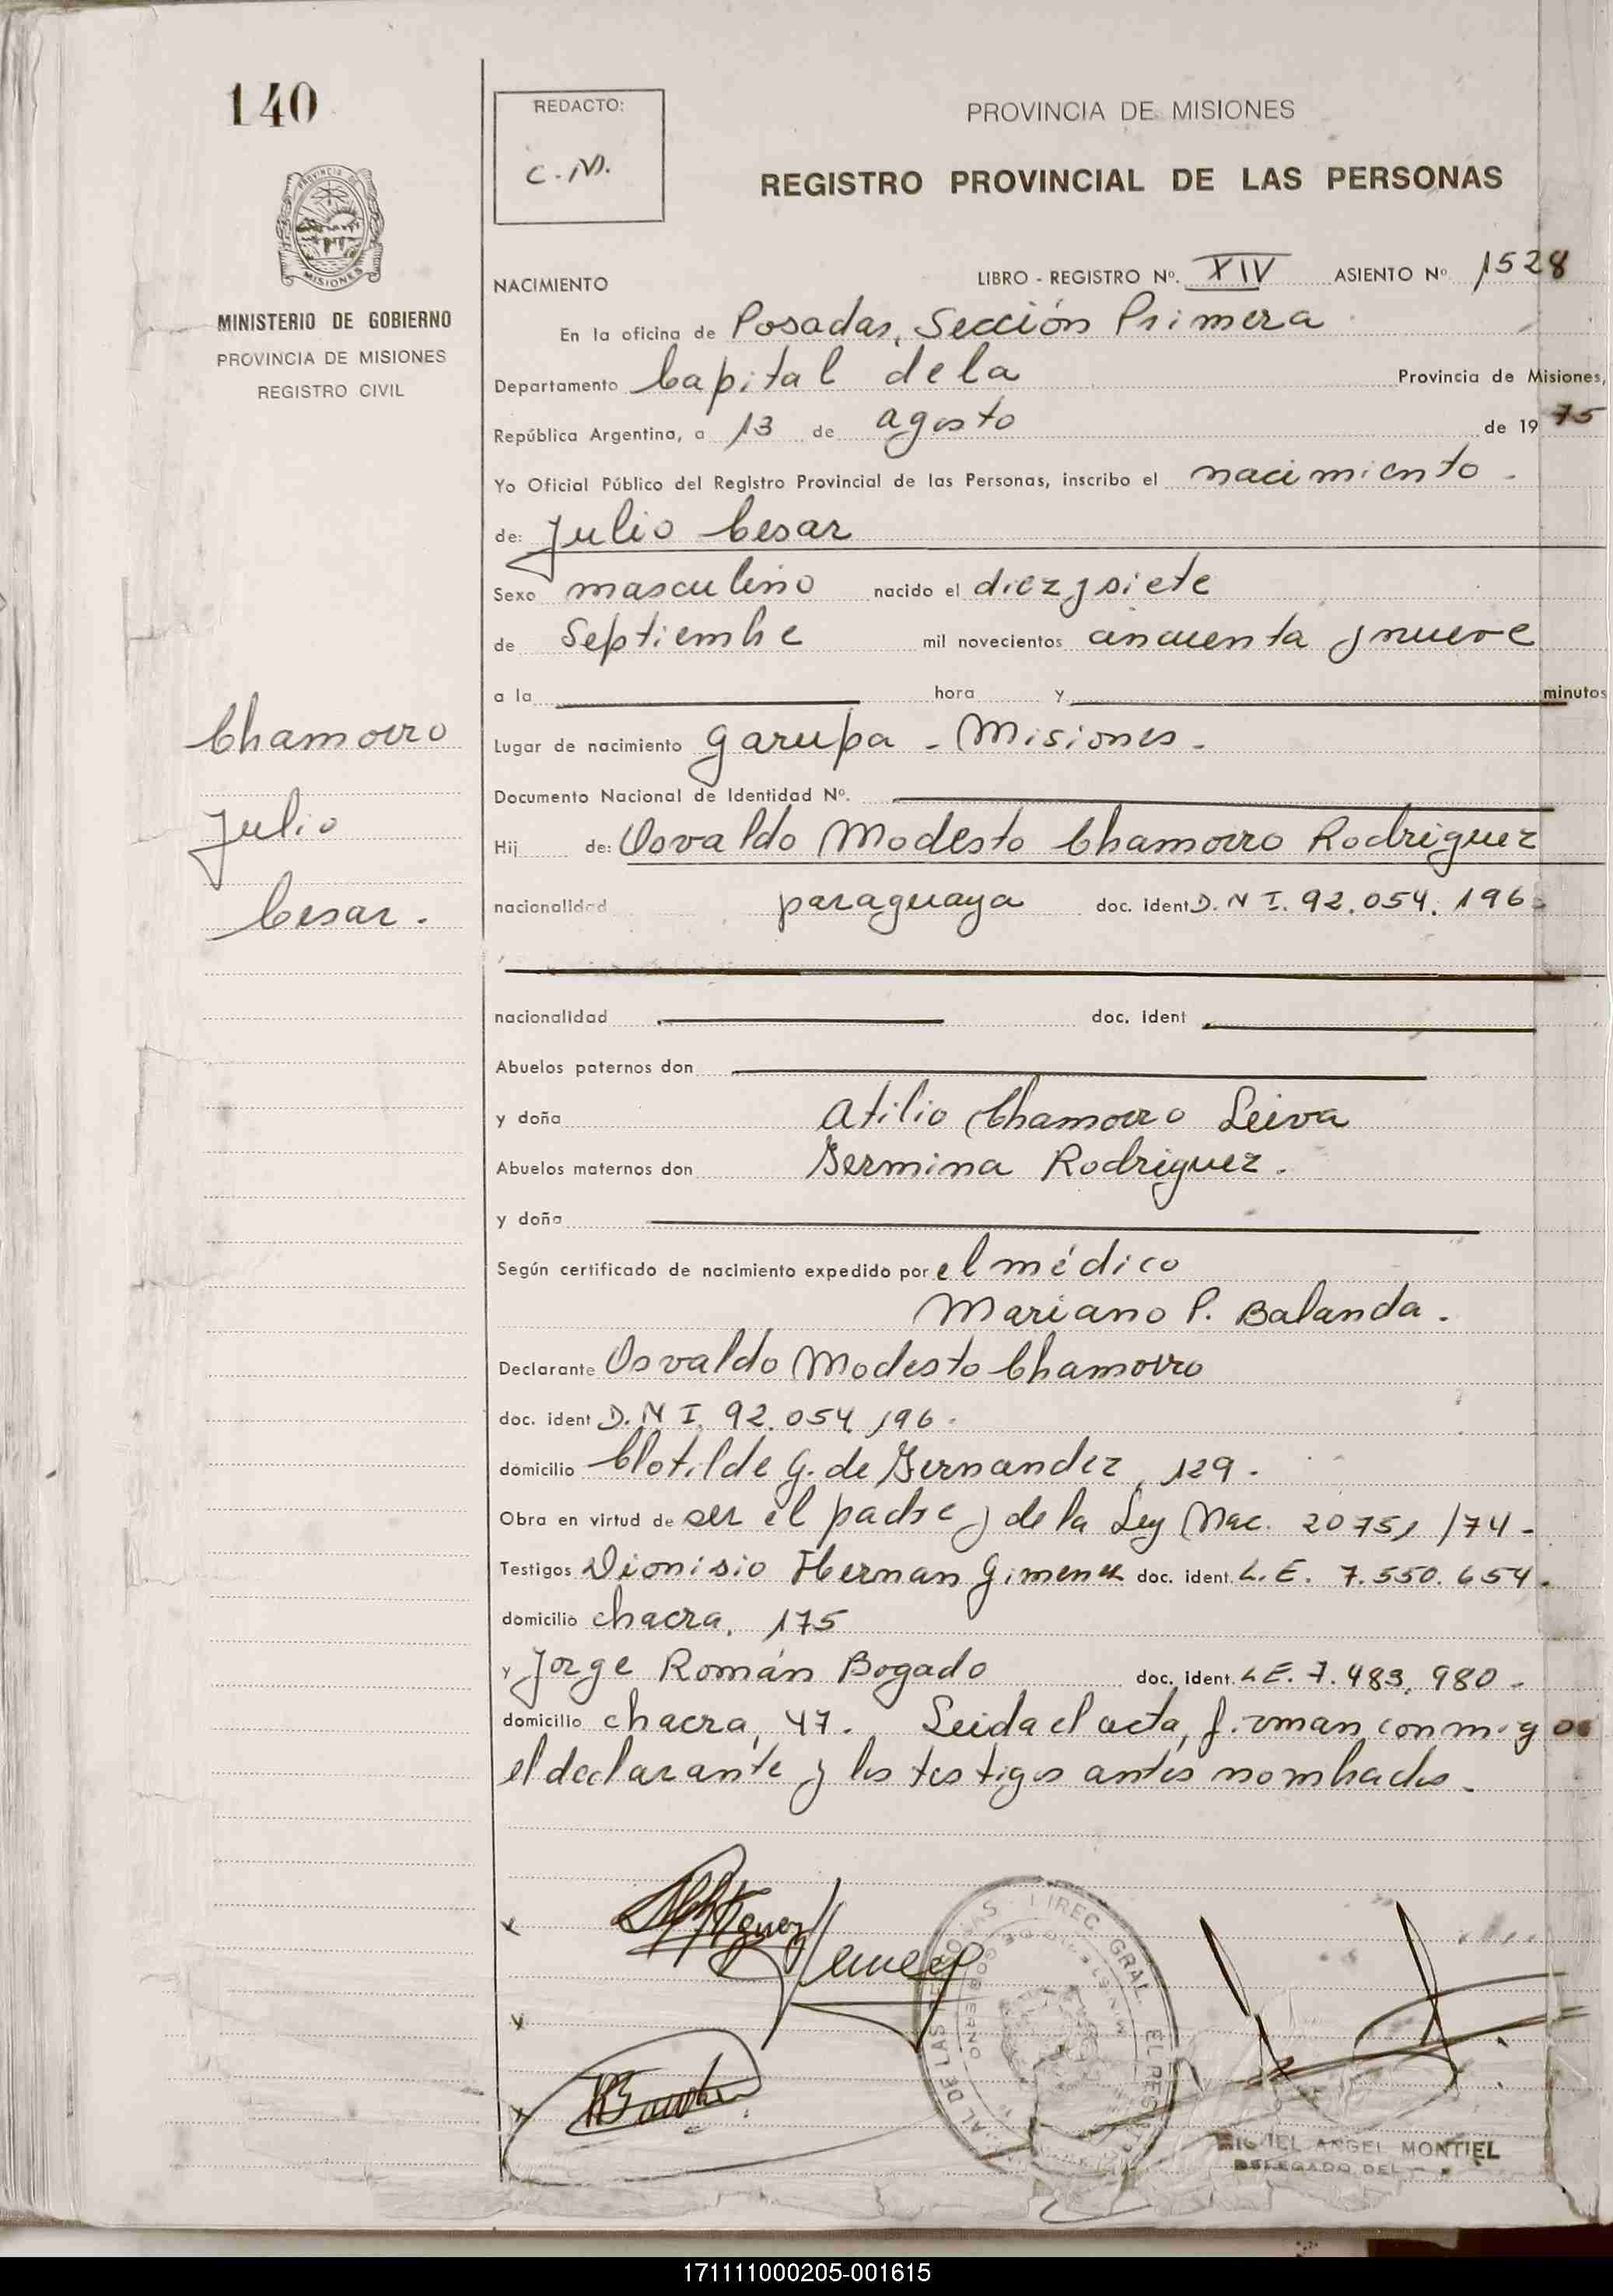 140
REDACTO:
C.M.
PROVINCIA DE MISIONES
REGISTRO PROVINCIAL DE LAS PERSONAS
MISIONES
MINISTERIO DE GOBIERNO
PROVINCIA DE MISIONES
REGISTRO CIVIL
NACIMIENTO LIBRO - REGISTRO Nº. XIV ASIENTO Nº 1528
En la oficina de Posadas, Sección Primera
Departamento Capital de la Provincia de Misiones,
República Argentina, a 13 de agosto de 1975
Yo Oficial Público del Registro Provincial de las Personas, inscribo el nacimiento.
de: Julio Cesar
Sexo masculino nacido el diez y siete
de Septiembre mil novecientos cincuenta y nueve
a la hora y minutos
Chamorro
Julio
Cesar.
Lugar de nacimiento Garupa - Misiones.
Documento Nacional de Identidad Nº.
Hij de: Osvaldo Modesto Chamorro Rodriguez
nacionalidad paraguaya doc. ident D.N I. 92.054.196
nacionalidad doc. ident
Abuelos paternos don
y doña Atilio Chamorro Leiva
Abuelos maternos don Germina Rodriguez.
y doña
Según certificado de nacimiento expedido por el médico
Mariano P. Balanda.
Declarante Osvaldo Modesto Chamorro
doc. ident D.N I. 92.054.196.
domicilio Clotilde G. de Fernandez, 129.
Obra en virtud de ser el padre y de la Ley Nac. 20751/74-
Testigos Dionisio Hernan Gimenez doc. ident. L.E. 7.550.654.
domicilio chacra, 175
y Jorge Román Bogado doc. ident. LE. 7.483.980-
domicilio chacra, 47. Leida el acta, firman conmigo
el declarante y los testigos antes nombrados.
DIREC. GRAL. DEL REGISTRO
MINISTERIO DE GOBIERNO
MIGUEL ANGEL MONTIEL
DELEGADO DEL
171111000205-001615